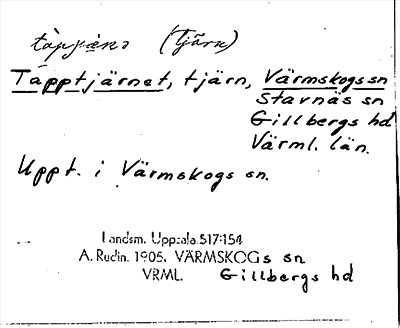 (Tjärn)
Tapptjärnet, tjärn, Värmskogs sn
Stavnäs sn
Gillbergs hd
Värml. län.
Uppt. i Värmskogs sn.
Landsm. Uppsala.517:154
A. Rudin. 1905. VÄRMSKOGs sn
VRML. Gillbergs hd